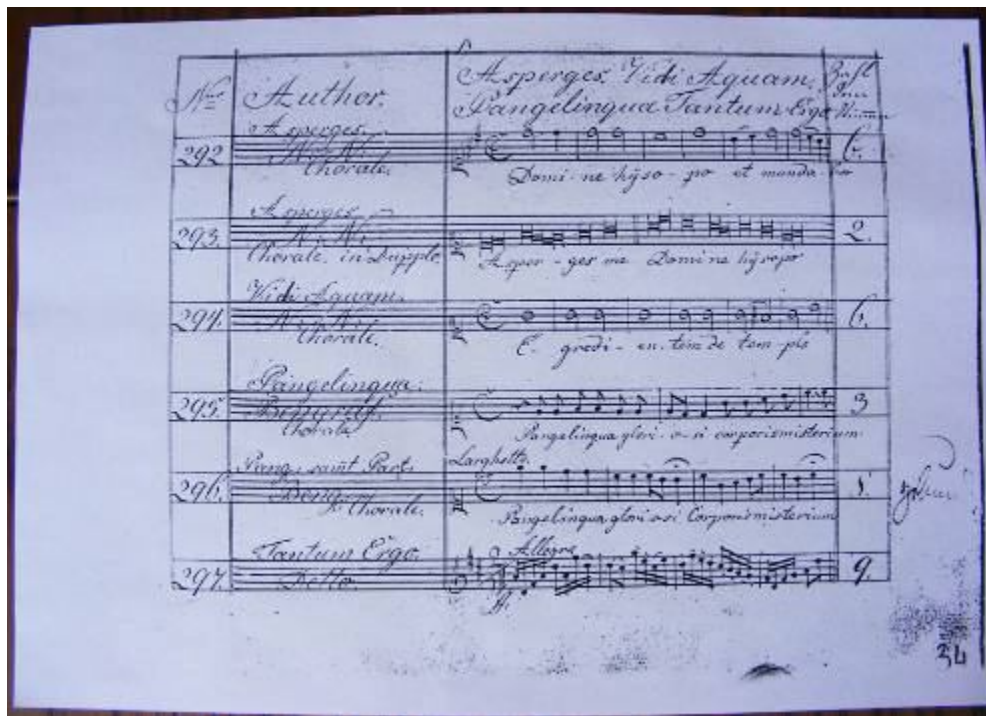 Author. Asperges. Vidi Aquam.
Pangelingua Tantum Ergo
292 Asperges. Chorale. 6.
Domi - ne hÿso - po et munda
293. Asperges N. N. 2.
Chorale. in Dupplo. Asper - ges me Domine hÿsopo
294. Vidi Aquam. N. N. 6.
Chorale. E - gredi - en. tem de tem - plo
295. Pangelingua. 3
Chorale Pangelingua glori - o - si corporis misterium
296. Larghetto.
Chorale. Pangelingua gloriosi Corporis misterium
297. Tantum Ergo. Allegro 9.
Detto.
34